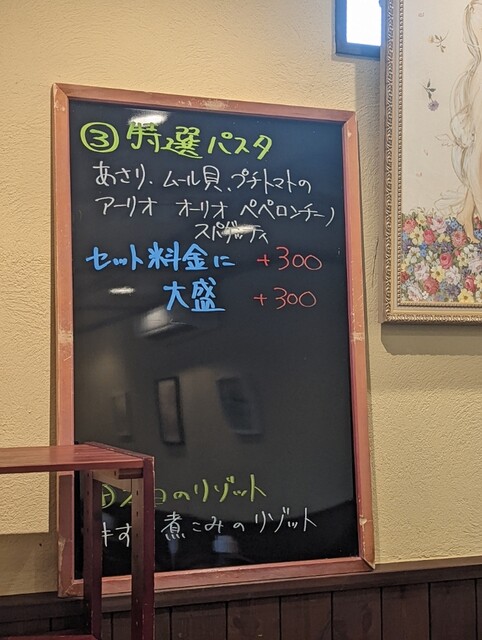 ③特選パスタ
あさり、ムール貝、プチトマトの
アーリオ オーリオ ペペロンチーノ
スパゲッティ
セット料金に +300
大盛 +300
日のリゾット
牛す 煮こみのリゾット